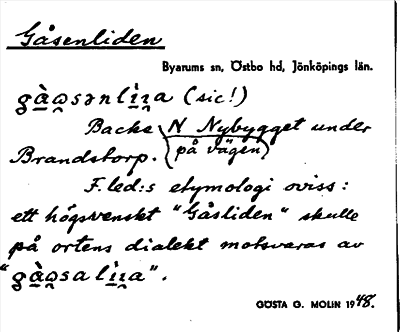 Gåsenliden
Byarums sn, Östbo hd, Jönköpings län.
gà̱o̯sənlì̱ṉa (sic!)
Backe N Nybygget under
Brandstorp. (på vägen)
F.led:s etymologi oviss:
ett högsvenskt "Gåsliden" skulle
på ortens dialekt motsvaras av
"gà̱o̯salì̱ṉa".
GÖSTA G. MOLIN 1948.